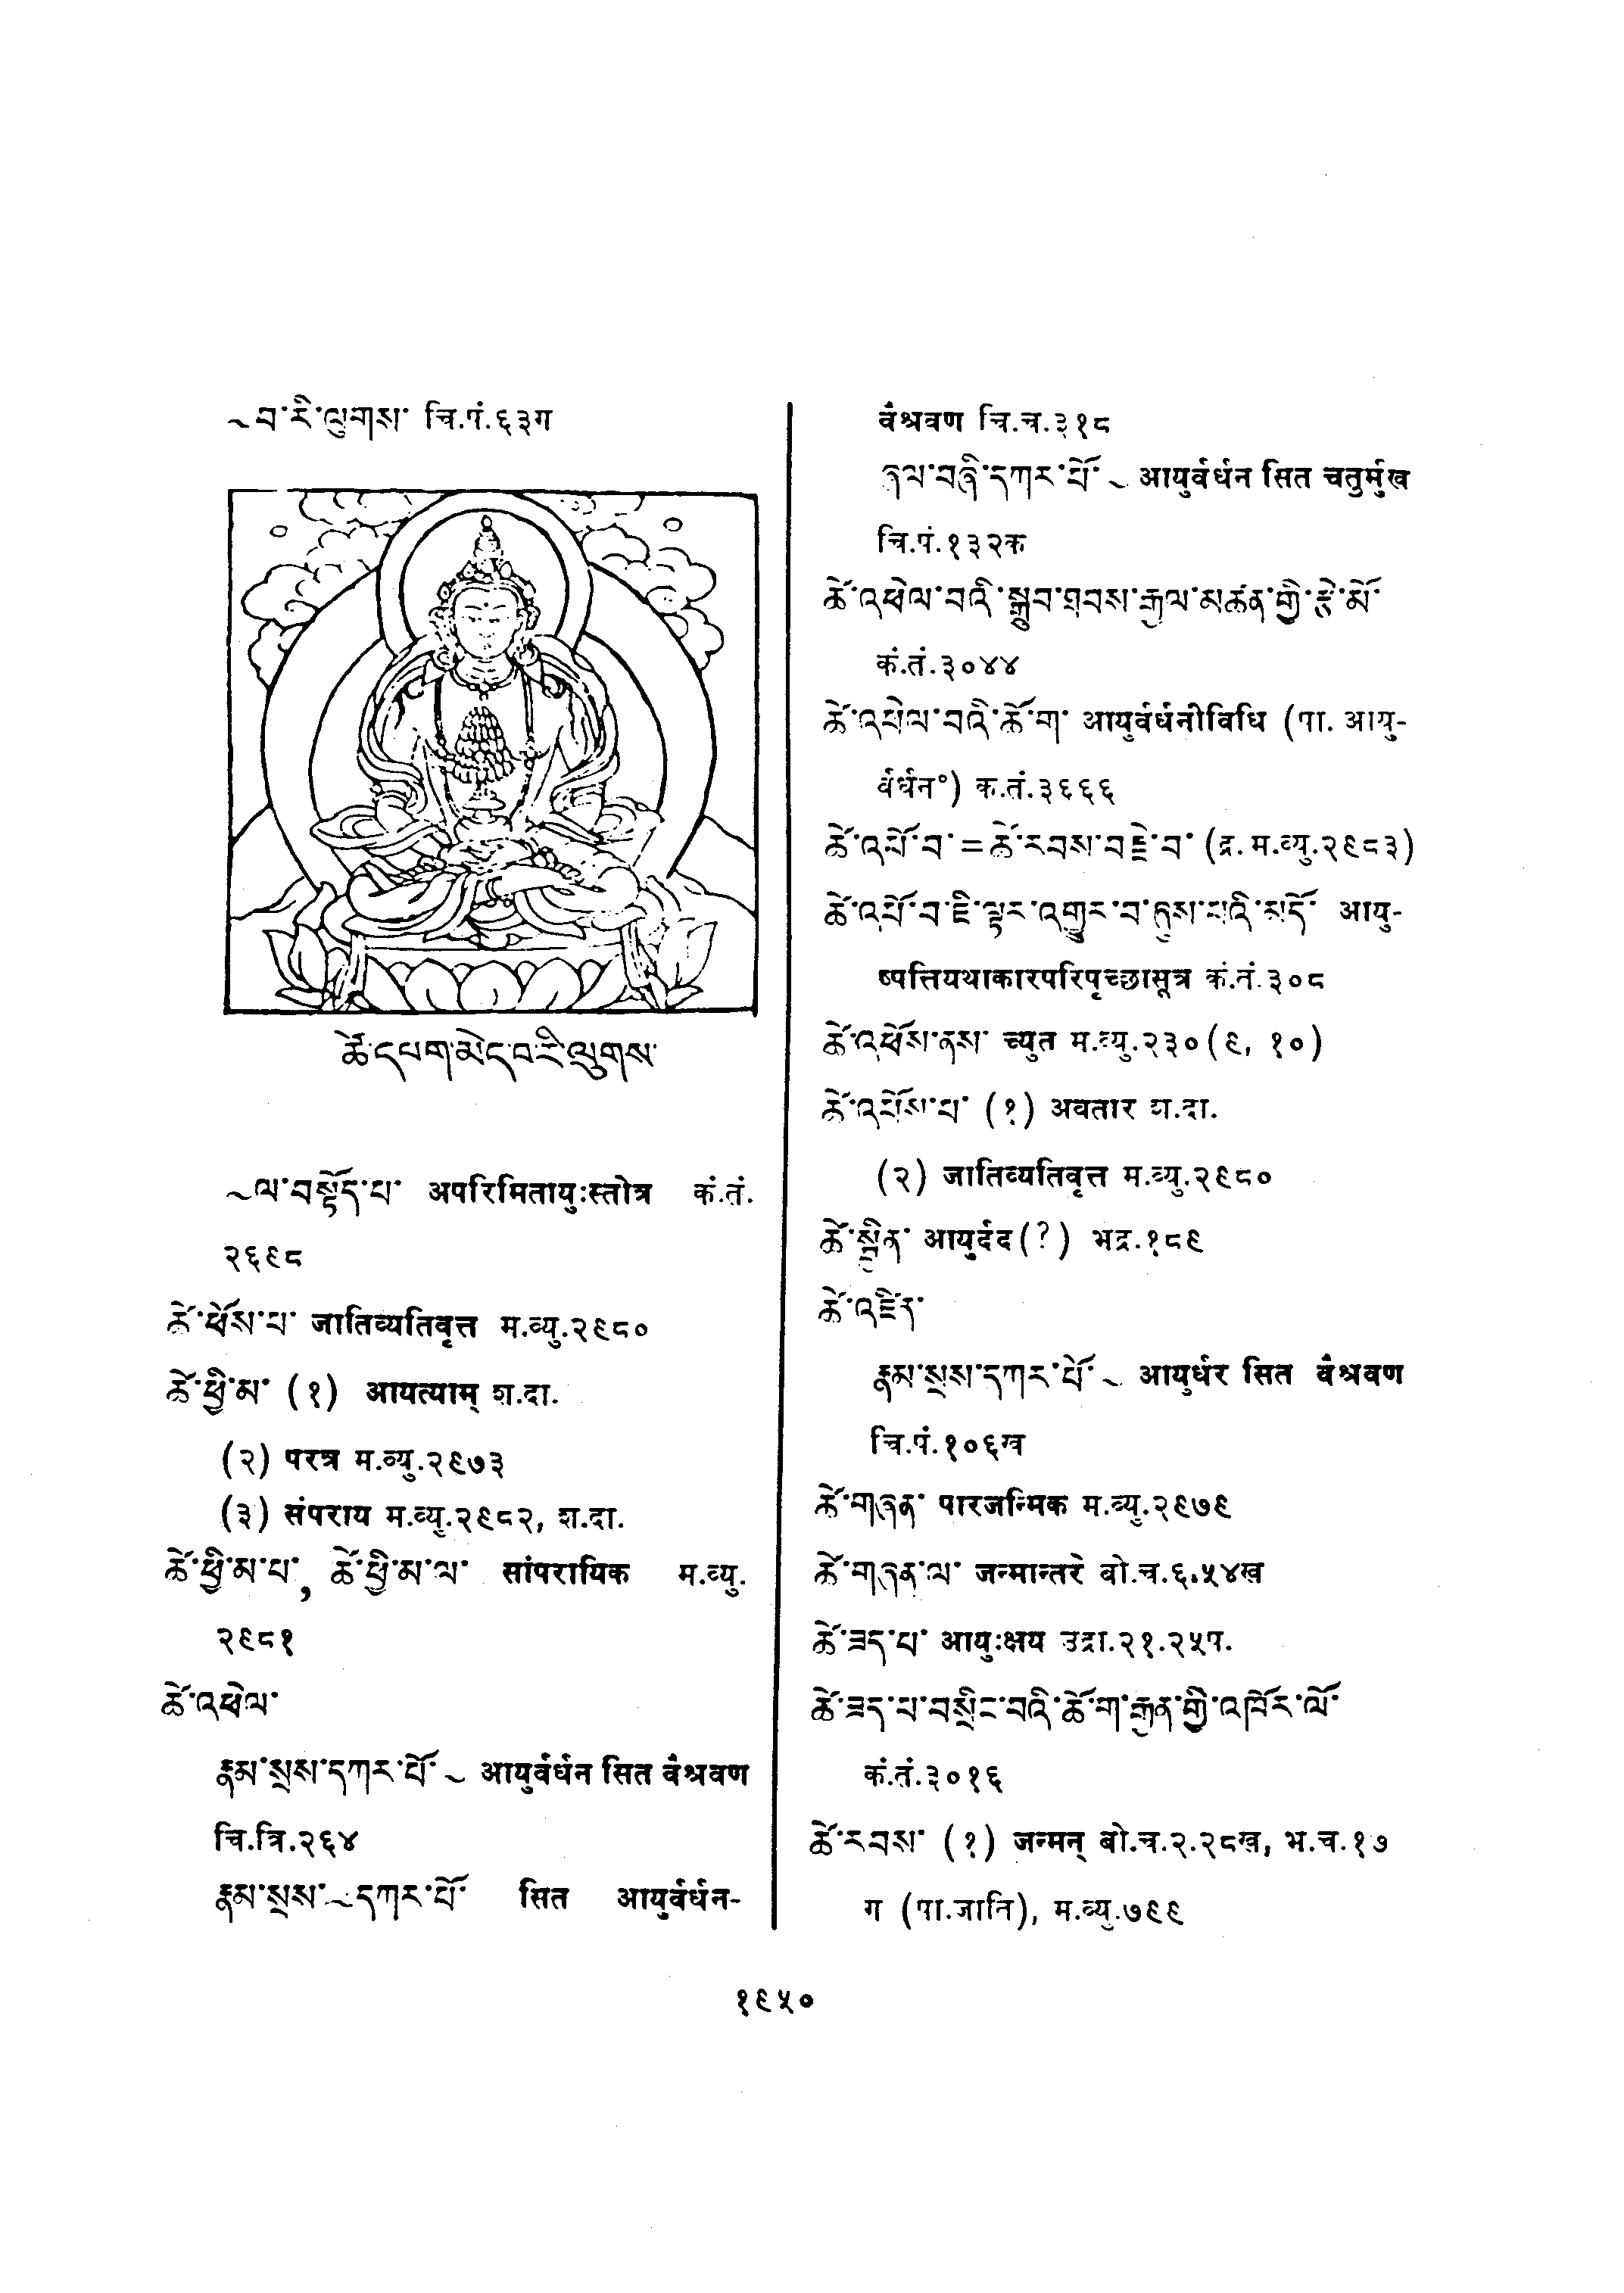 ~བ་རི་ལུགས་ चि.पं.६३ग
ཚེ་དཔག་མེད་བ་རི་ལུགས་
~ལ་བསྟོད་པ་ अपरिमितायुःस्तोत्र कं.तं.
२६९८
ཚེ་ཕོས་པ་ जातिव्यतिवृत्त म.व्यु.२९८०
ཚེ་ཕྱི་མ་ (१) आयत्याम् श.दा.
(२) परत्र म.व्यु.२९७३
(३) संपराय म.व्यु.२९८२, श.दा.
ཚེ་ཕྱི་མ་པ་, ཚེ་ཕྱི་མ་ལ་ सांपरायिक म.व्यु.
२९८१
ཚེ་འཕེལ་
རྣམ་སྲས་དཀར་པོ་~ आयुर्वर्धन सित वैश्रवण
चि.त्रि.२६४
རྣམ་སྲས་~དཀར་པོ་ सित आयुर्वर्धन-
वैश्रवण चि.च.३१८
ཞལ་བཞི་དཀར་པོ་~ आयुर्वर्धन सित चतुर्मुख
चि.पं.१३२क
ཚེ་འཕེལ་བའི་སྒྲུབ་ཐབས་རྒྱལ་མཚན་གྱི་རྩེ་མོ་
कं.तं.३०४४
ཚེ་འཕེལ་བའི་ཆོ་ག་ आयुर्वर्धनीविधि (पा. आयु-
र्वर्धन°) क.तं.३६६६
ཚེ་འཕོ་བ་=ཚེ་རབས་བརྗེ་བ་ (द्र. म.व्यु.२९८३)
ཚེ་འཕོ་བ་ཇི་ལྟར་འགྱུར་བ་ཞུས་པའི་མདོ་ आयु-
ष्पत्तियथाकारपरिपृच्छासूत्र कं.तं.३०८
ཚེ་འཕོས་ནས་ च्युत म.व्यु.२३०(९, १०)
ཚེ་འཕོས་པ་ (१) अवतार श.दा.
(२) जातिव्यतिवृत्त म.व्यु.२९८०
ཚེ་སྦྱིན་ आयुर्दद(?) भद्र.१८९
ཚེ་འཛིན་
རྣམ་སྲས་དཀར་པོ་~ आयुर्धर सित वैश्रवण
चि.पं.१०६ख
ཚེ་གཞན་ पारजन्मिक म.व्यु.२९७९
ཚེ་གཞན་ལ་ जन्मान्तरे बो.च.६.५४ख
ཚེ་ཟད་པ་ आयुःक्षय उद्रा.२१.२५प.
ཚེ་ཟད་པ་བསྲིང་བའི་ཆོ་ག་རྒྱན་གྱི་འཁོར་ལོ་
कं.तं.३०१६
ཚེ་རབས་ (१) जन्मन् बो.च.२.२८ख, भ.च.१७
ग (पा.जाति), म.व्यु.७९९
१९५०